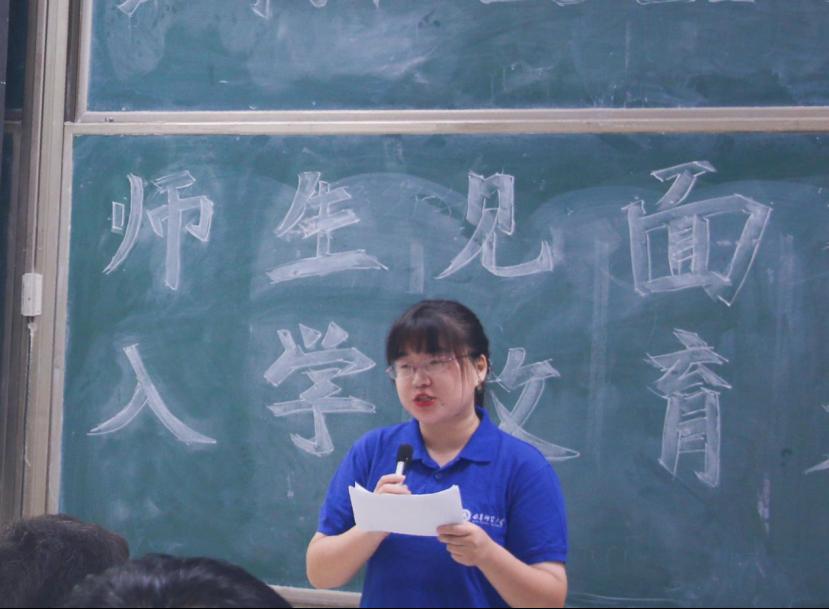 师生见面
入学教育